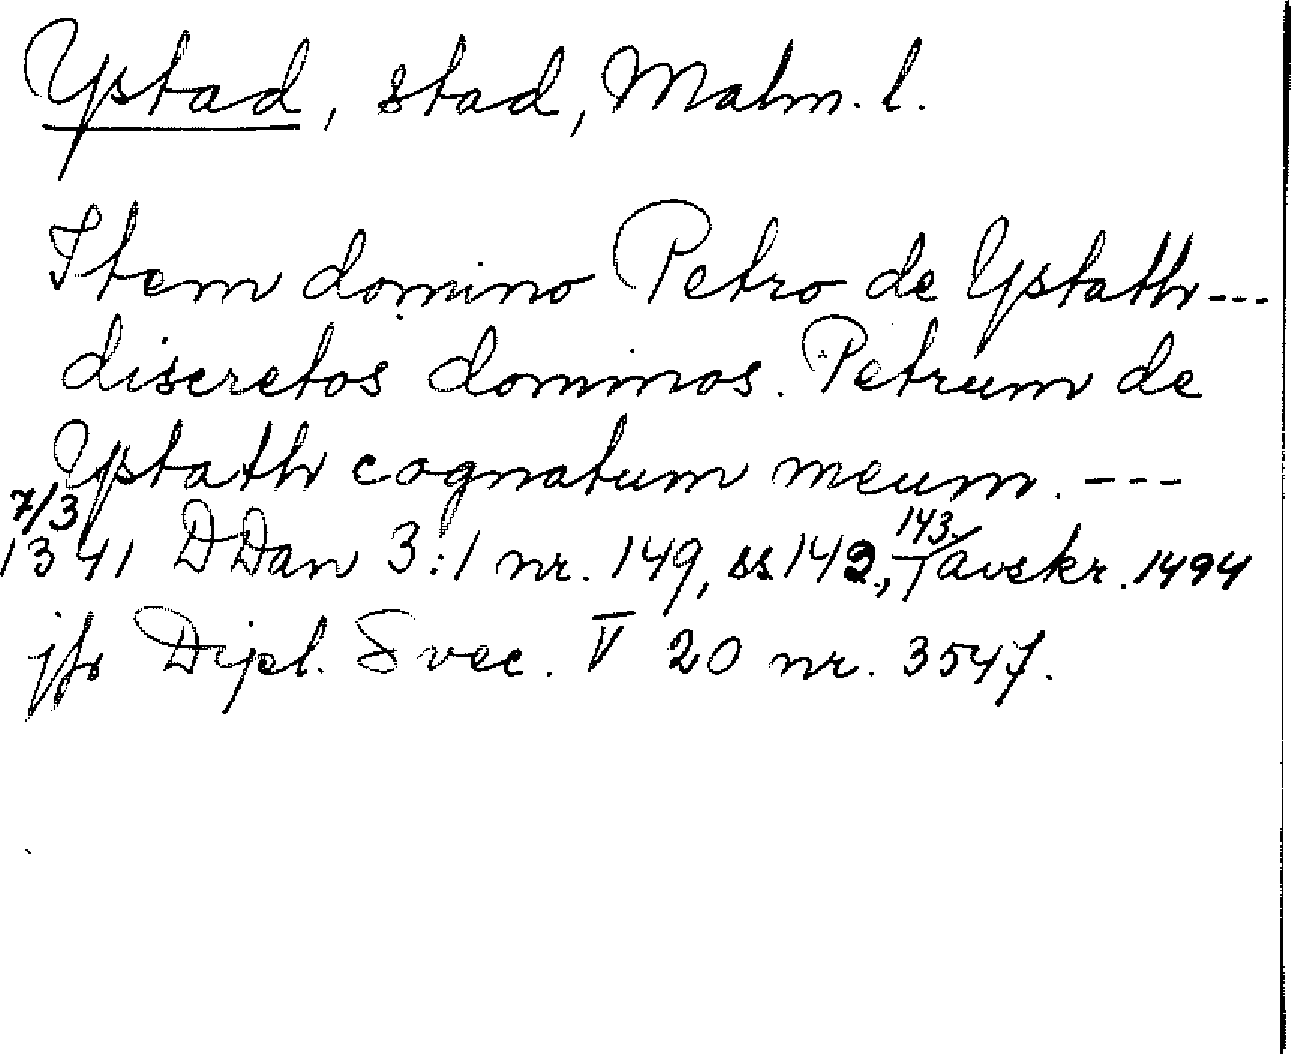 Ystad, stad, Malm. l.
Item domino Petro de Ystath ---
discretos dominos. Petrum de
Ystath cognatum meum. ---
7/3
1341 DDan 3:1 nr. 149, ss 142., 143/ avskr. 1494
jfr Dipl. Svec. V 20 nr. 3547.